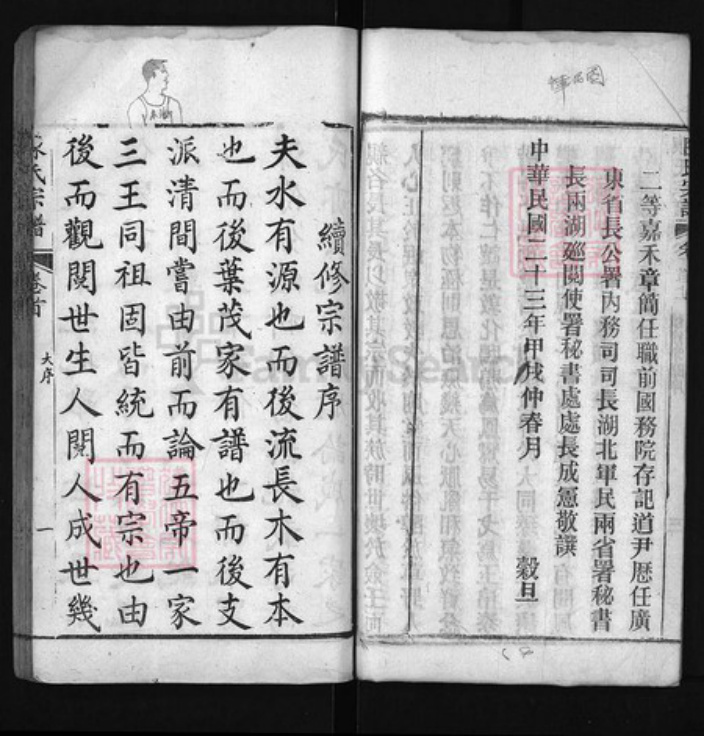 二等嘉禾章簡任職前國務院存記道尹歷任廣
東省長公署內務司司長湖北軍民兩省署秘書
長兩湖巡閱使署秘書處處長成憲敬譔
中華民國二十三年甲戌仲春月 穀旦
續修宗譜序
夫水有源也而後流長木有本
也而後葉茂家有譜也而後支
派清間嘗由前而論五帝一家
三王同祖固皆統而有宗也由
後而觀閱世生人閱人成世幾
氏宗譜
卷首
大序
一